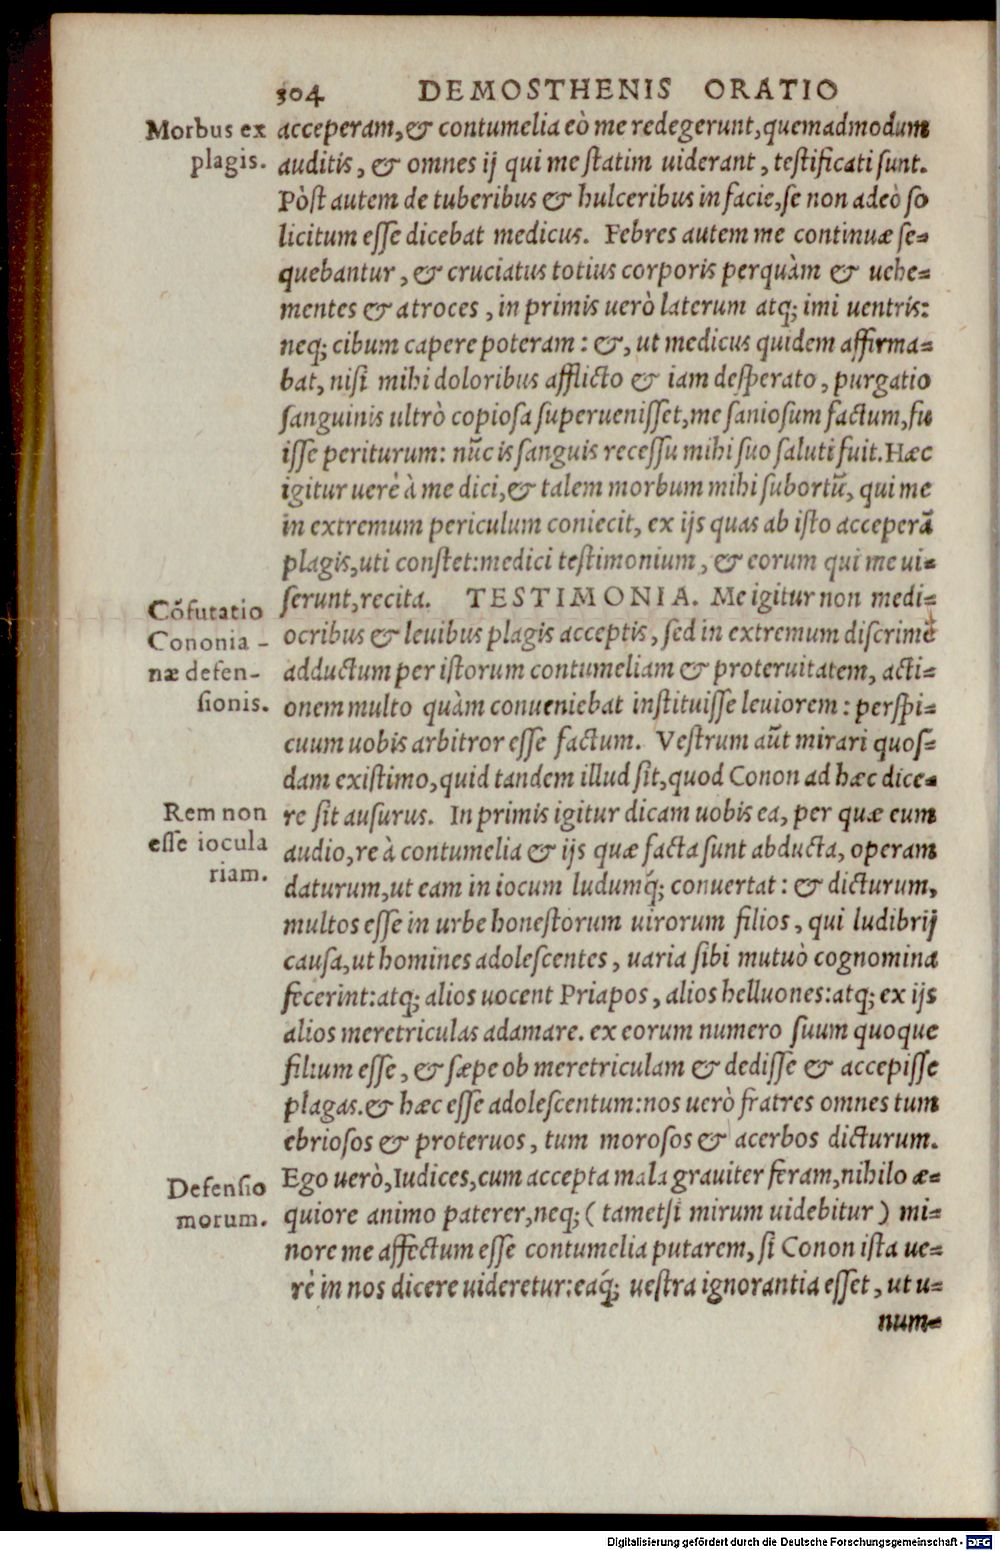 304 DEMOSTHENIS ORATIO
Morbus ex
plagis.
acceperam, & contumelia eò me redegerunt, quemadmodum
auditis, & omnes ij qui me statim uiderant, testificati sunt.
Pòst autem de tuberibus & hulceribus in facie, se non adeò so
licitum esse dicebat medicus. Febres autem me continuæ se=
quebantur, & cruciatus totius corporis perquàm & uehe=
mentes & atroces, in primis uerò laterum atq; imi uentris:
neq; cibum capere poteram: &, ut medicus quidem affirma=
bat, nisi mihi doloribus afflicto & iam desperato, purgatio
sanguinis ultrò copiosa superuenisset, me saniosum factum, fu
isse periturum: nũc is sanguis recessu mihi suo saluti fuit. Hæc
igitur uerè à me dici, & talem morbum mihi subortũ, qui me
in extremum periculum coniecit, ex ijs quas ab isto acceperã
plagis, uti constet: medici testimonium, & eorum qui me ui=
serunt, recita. TESTIMONIA. Me igitur non medi=
Cõfutatio
Cononia-
næ defen-
sionis.
ocribus & leuibus plagis acceptis, sed in extremum discrimẽ
adductum per istorum contumeliam & proteruitatem, acti=
onem multo quàm conueniebat instituisse leuiorem: perspi=
cuum uobis arbitror esse factum. Vestrum aũt mirari quos=
dam existimo, quid tandem illud sit, quod Conon ad hæc dice=
Rem non
esse iocula
riam.
re sit ausurus. In primis igitur dicam uobis ea, per quæ eum
audio, re à contumelia & ijs quæ facta sunt abducta, operam
daturum, ut eam in iocum ludumq́; conuertat: & dicturum,
multos esse in urbe honestorum uirorum filios, qui ludibrij
causa, ut homines adolescentes, uaria sibi mutuò cognomina
fecerint: atq; alios uocent Priapos, alios helluones: atq; ex ijs
alios meretriculas adamare. ex eorum numero suum quoque
filium esse, & sæpe ob meretriculam & dedisse & accepisse
plagas. & hæc esse adolescentum: nos uerò fratres omnes tum
ebriosos & proteruos, tum morosos & acerbos dicturum.
Defensio
morum.
Ego uerò, Iudices, cum accepta mala grauiter feram, nihilo æ=
quiore animo paterer, neq; (tametsi mirum uidebitur) mi=
nore me affectum esse contumelia putarem, si Conon ista ue=
rè in nos dicere uideretur: eaq́; uestra ignorantia esset, ut u=
num=
Digitalisierung gefördert durch die Deutsche Forschungsgemeinschaft - DFG